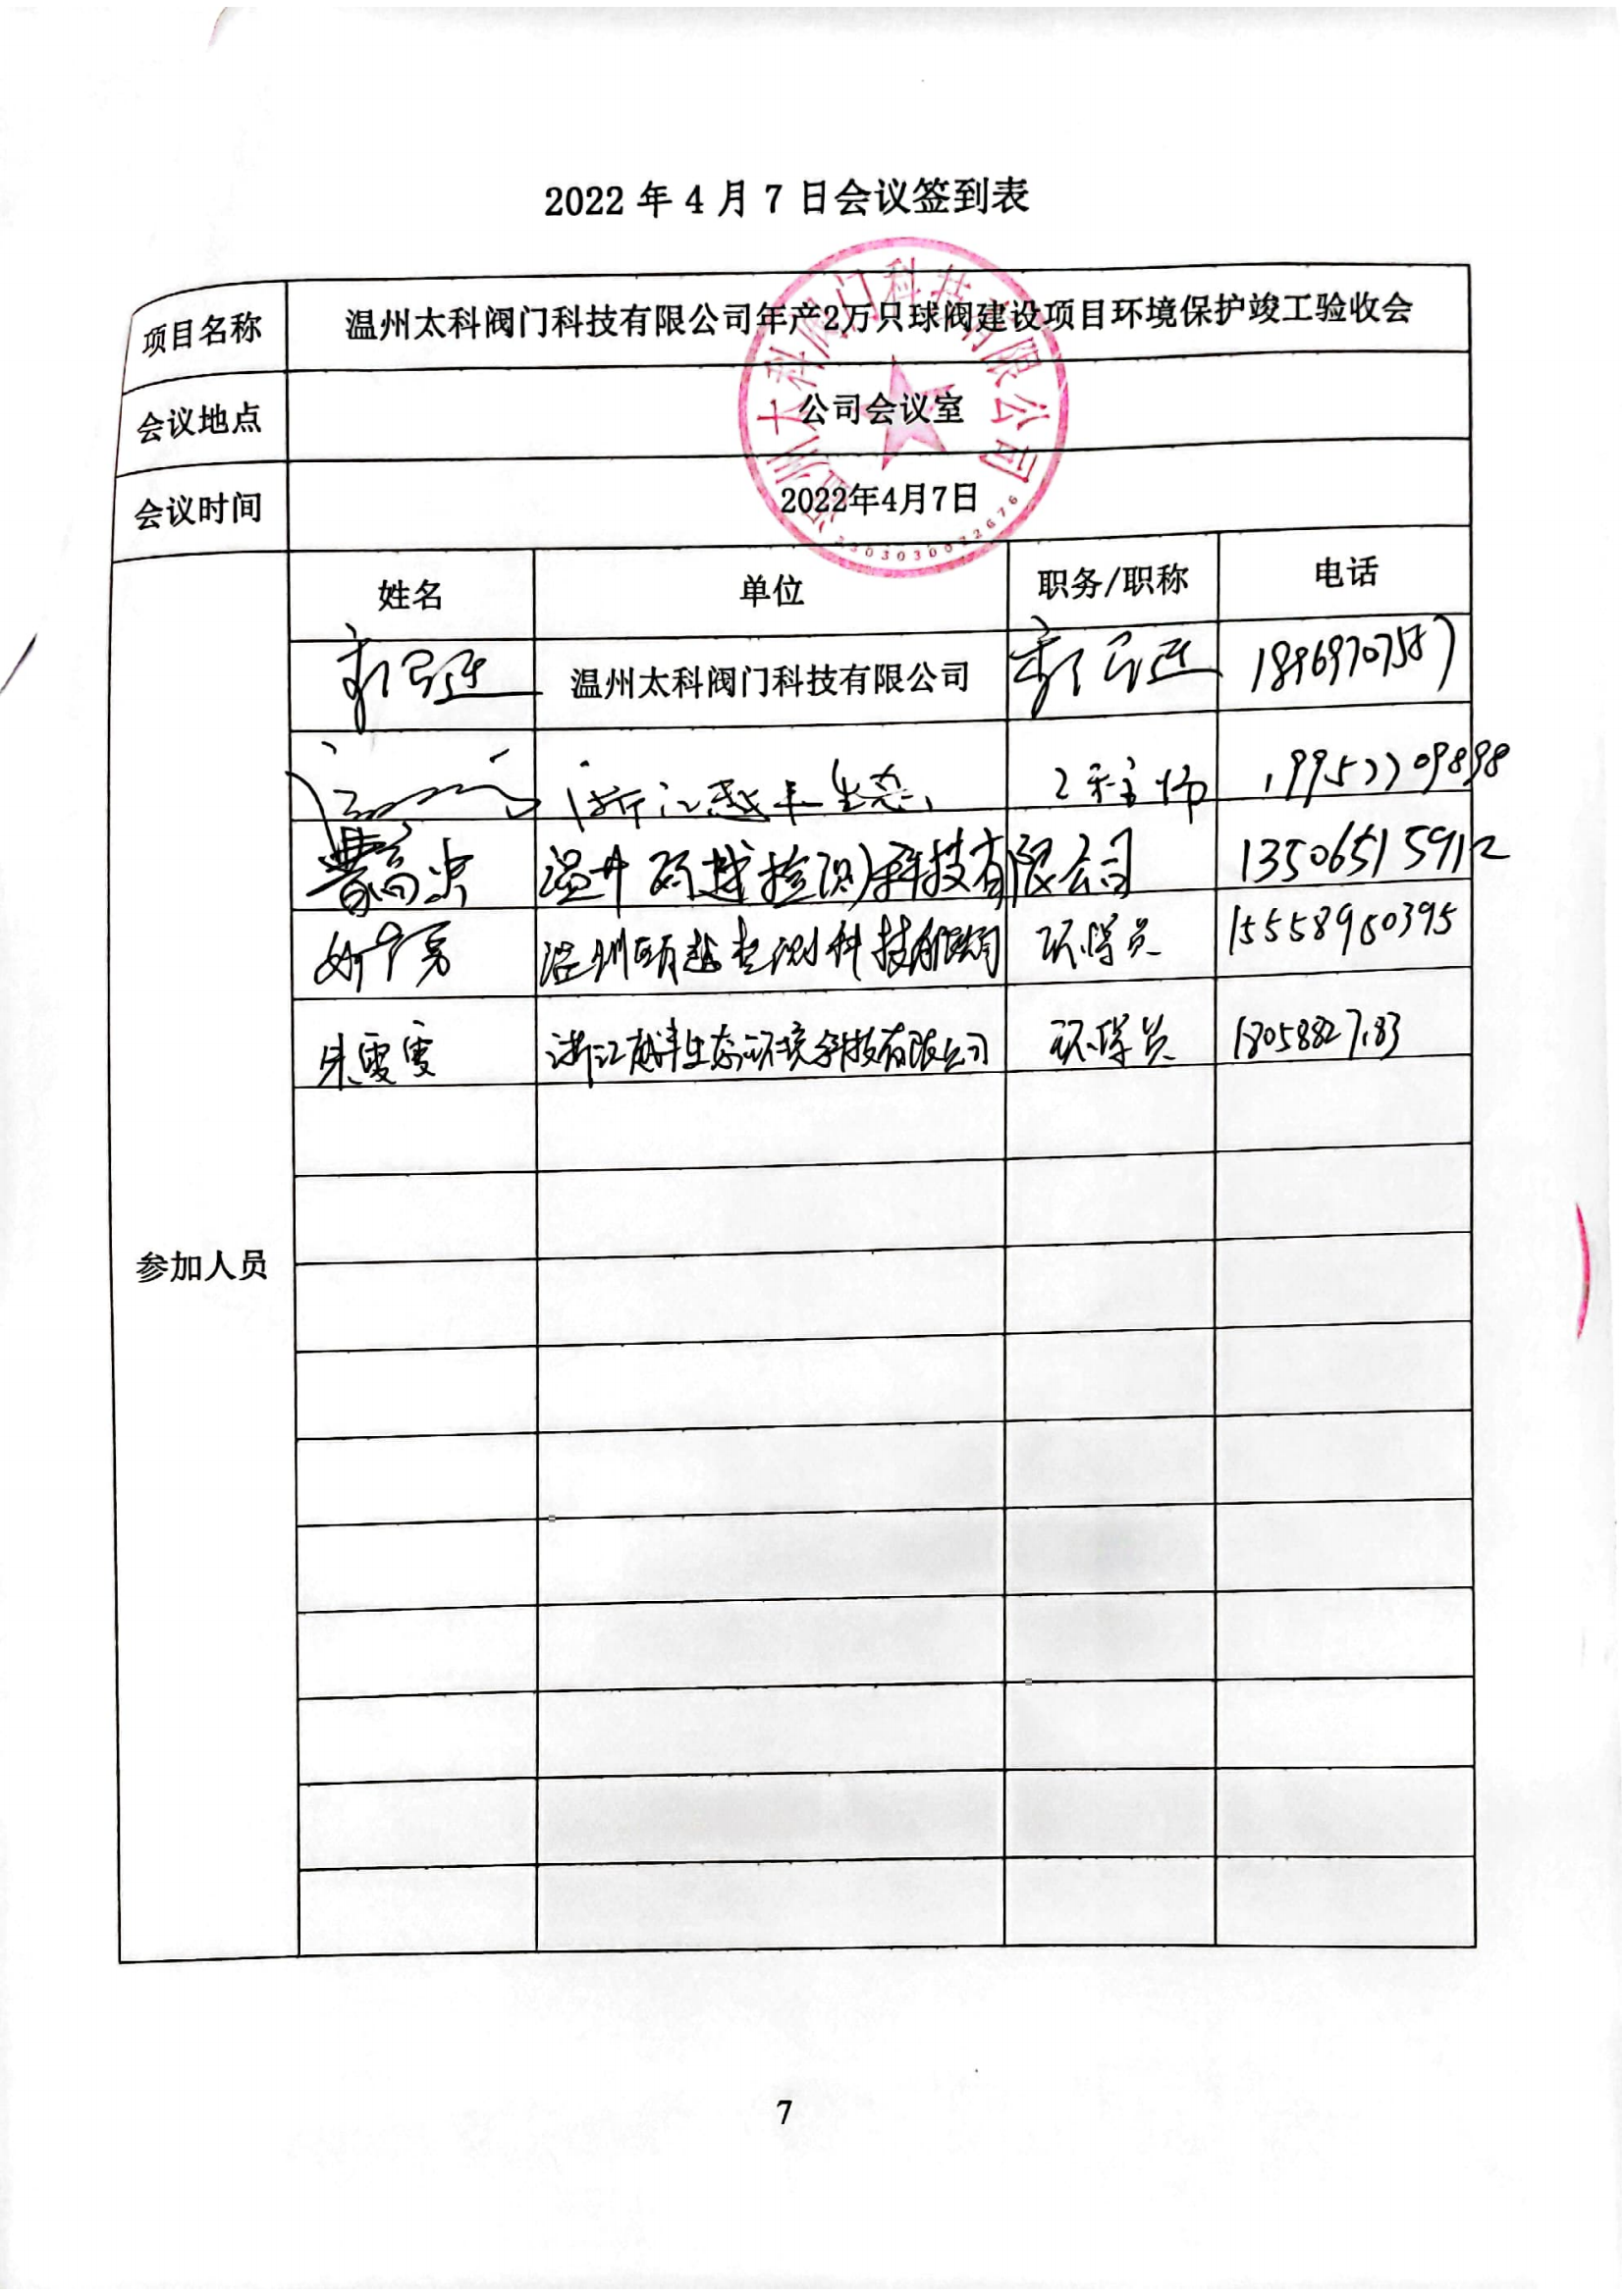 2022年4月7日会议签到表
项目名称 温州太科阀门科技有限公司年产2万只球阀建设项目环境保护竣工验收会
会议地点 公司会议室
会议时间 2022年4月7日
温州太科阀门科技有限公司
姓名 单位 职务/职称 电话
温州太科阀门科技有限公司
浙江越丰生态 工程师
曹高忠 温州硕越检测科技有限公司 13506515912
温州硕越检测科技有限公司 环保员 15558950395
朱雯雯 浙江越丰生态环境科技有限公司 环保员
参加人员
7